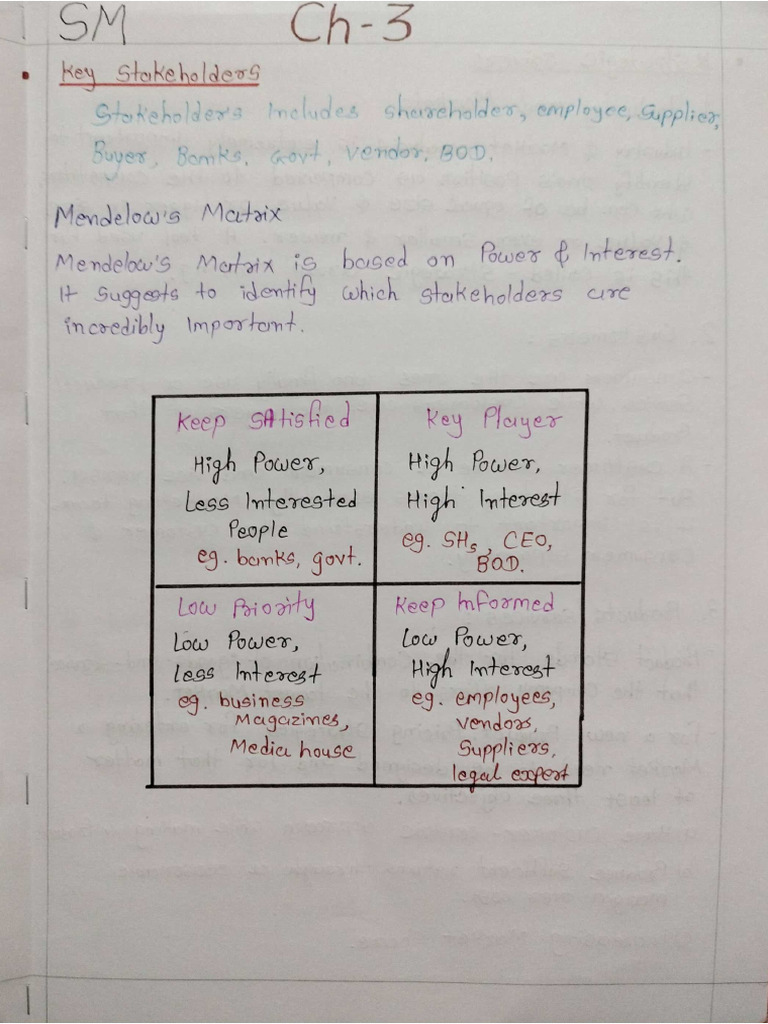 SM Ch-3
Key Stakeholders
Stakeholders Includes shareholder, employee, Supplier,
Buyer, Banks, Govt, Vendor, BOD.
Mendelow's Matrix
Mendelow's Matrix is based on Power & Interest.
It suggests to identify which stakeholders are
incredibly Important.
Keep Satisfied
High Power,
Less Interested
People
eg. banks, govt.
Key Player
High Power,
High Interest
eg. SHs, CEO,
BOD.
Low Priority
Low Power,
less Interest
eg. business
Magazines,
Media house
Keep Informed
Low Power,
High Interest
eg. employees,
Vendors,
Suppliers,
legal expert